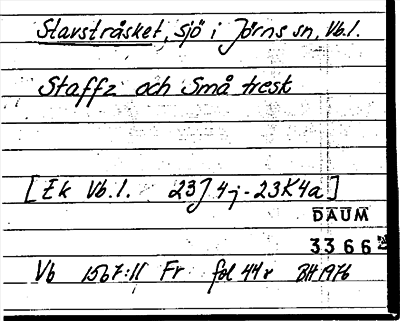 Stavsträsket, sjö i Jörns sn, Vb.l.
Staffz och Små tresk
[Ek Vb.l. 23J4j-23K4a]
DAUM
3366
Vb 1567:11 Fr fol 44r BH 1976